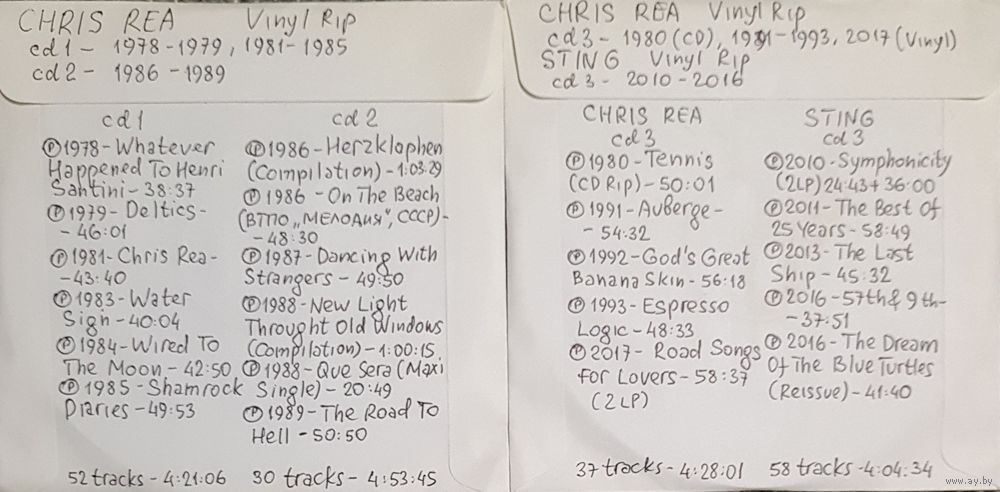 CHRIS REA Vinyl Rip
cd1 - 1978-1979, 1981-1985
cd2 - 1986-1989
cd1
℗1978-Whatever
Happened To Henri
Santini-38:37
℗1979-Deltics-
-46:01
℗1981-Chris Rea-
-43:40
℗1983-Water
Sign-40:04
℗1984-Wired To
The Moon-42:50
℗1985-Shamrock
Diaries-49:53
52 tracks-4:21:06
cd2
℗1986-Herzklophen
(Compilation)-1:03:29
℗1986-On The Beach
(ВТПО „МЕЛОДИЯ", СССР)-
-48:30
℗1987-Dancing With
Strangers-49:50
℗1988-New Light
Throught Old Windows
(Compilation)-1:00:15
℗1988-Que Sera (Maxi
Single)-20:49
℗1989-The Road To
Hell-50:50
30 tracks-4:53:45
CHRIS REA Vinyl Rip
cd3-1980 (CD), 1991-1993, 2017 (Vinyl)
STING Vinyl Rip
cd3-2010-2016
CHRIS REA
cd3
℗1980-Tennis
(CD Rip)-50:01
℗1991-Auberge-
-54:32
℗1992-God's Great
Banana Skin-56:18
℗1993-Espresso
Logic-48:33
℗2017-Road Songs
for Lovers-58:37
(2LP)
37 tracks-4:28:01
STING
cd3
℗2010-Symphonicity
(2LP) 24:43+36:00
℗2011-The Best Of
25 Years-58:49
℗2013-The Last
Ship-45:32
℗2016-57th & 9th-
-37:51
℗2016-The Dream
Of The Blue Turtles
(Reissue)-41:40
58 tracks-4:04:34
www.ay.by